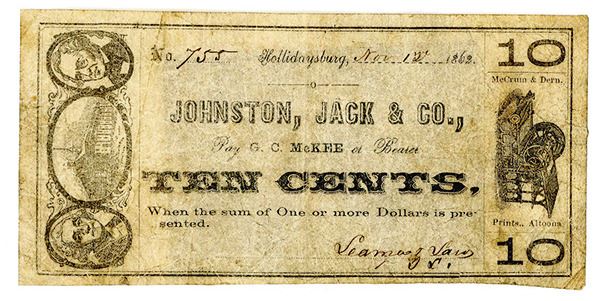 No. 755 Hollidaysburg, Nov. 12th 1862.
10
McCrum & Dern.
JOHNSTON, JACK & CO.,
Pay G. C. McKEE or Bearer
TEN CENTS,
When the sum of One or more Dollars is pre-
sented.
Prints., Altoona
10